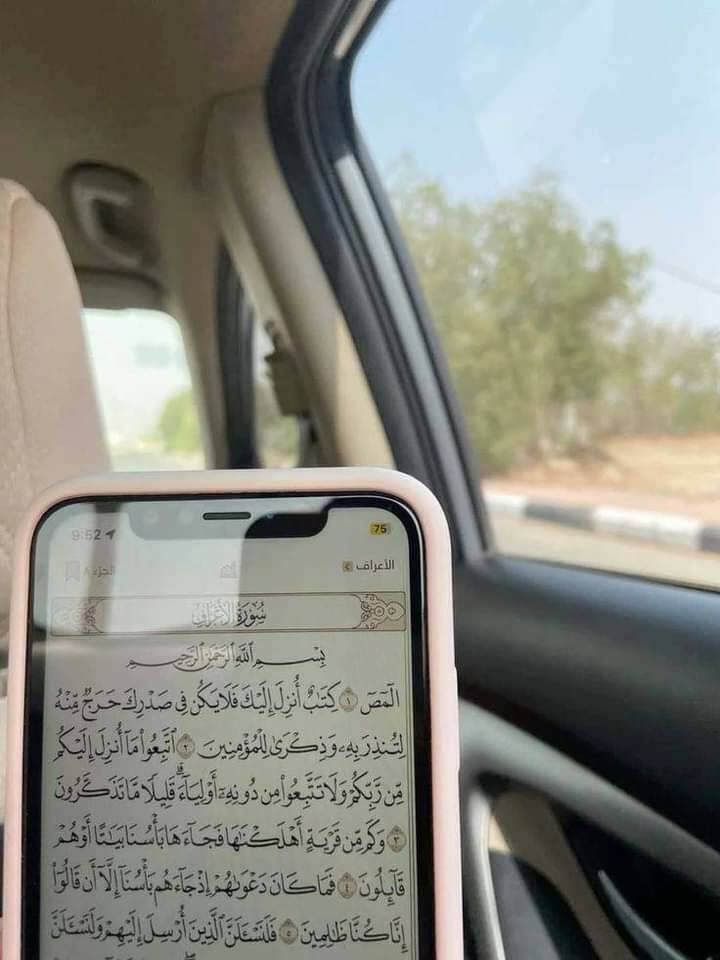 9:52
75
الأعراف
الجزء ٨
سُورَةُ الأَعْرَافِ
بِسْمِ ٱللَّهِ ٱلرَّحْمَٰنِ ٱلرَّحِيمِ
الٓمٓصٓ ١ كِتَٰبٌ أُنزِلَ إِلَيْكَ فَلَا يَكُن فِى صَدْرِكَ حَرَجٌ مِّنْهُ
لِتُنذِرَ بِهِۦ وَذِكْرَىٰ لِلْمُؤْمِنِينَ ٢ ٱتَّبِعُوا۟ مَآ أُنزِلَ إِلَيْكُم
مِّن رَّبِّكُمْ وَلَا تَتَّبِعُوا۟ مِن دُونِهِۦٓ أَوْلِيَآءَ ۗ قَلِيلًا مَّا تَذَكَّرُونَ
٣ وَكَم مِّن قَرْيَةٍ أَهْلَكْنَٰهَا فَجَآءَهَا بَأْسُنَا بَيَٰتًا أَوْ هُمْ
قَآئِلُونَ ٤ فَمَا كَانَ دَعْوَىٰهُمْ إِذْ جَآءَهُم بَأْسُنَآ إِلَّآ أَن قَالُوٓا۟
إِنَّا كُنَّا ظَٰلِمِينَ ٥ فَلَنَسْـَٔلَنَّ ٱلَّذِينَ أُرْسِلَ إِلَيْهِمْ وَلَنَسْـَٔلَنَّ